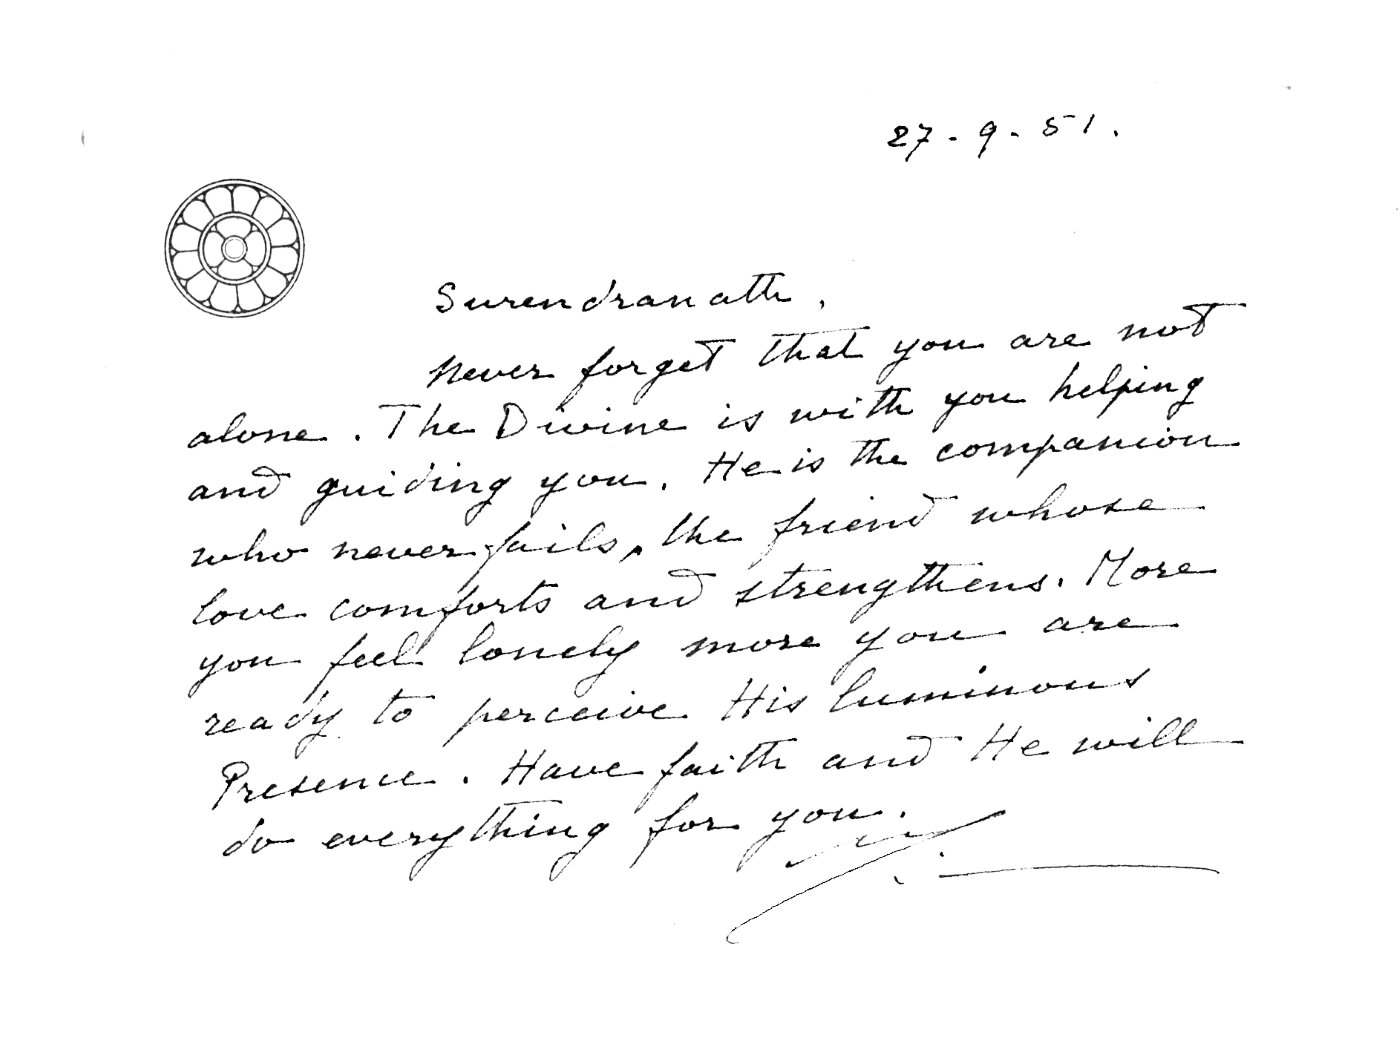 27-9-51.
Surendranath,
Never forget that you are not
alone. The Divine is with you helping
and guiding you. He is the companion
who never fails, the friend whose
love comforts and strengthens. More
you feel lonely more you are
ready to perceive His luminous
Presence. Have faith and He will
do everything for you.